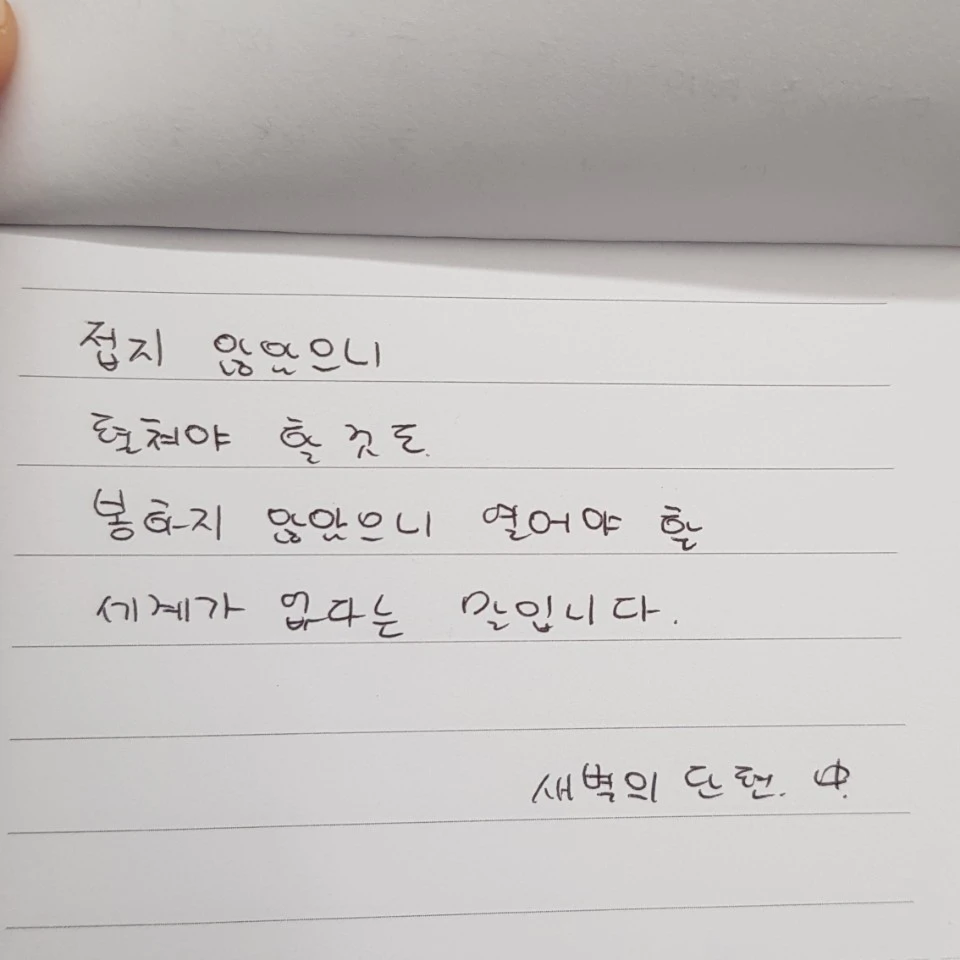 접지 않았으니
펼쳐야 할 것도
봉하지 않았으니 열어야 할
세계가 없다는 말입니다.
새벽의 단편.